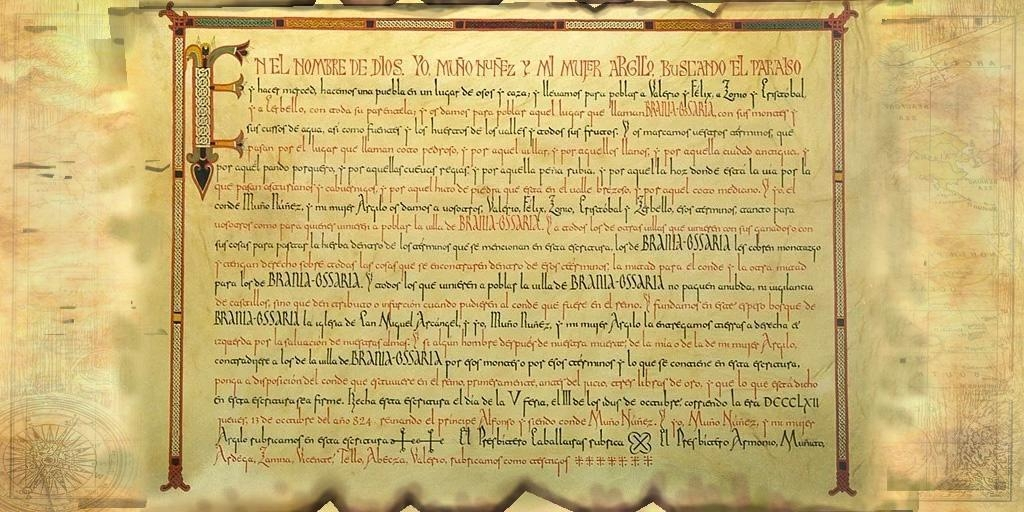 EN EL NOMBRE DE DIOS. YO, MUÑO NUÑEZ Y MI MUJER ARGILO, BUSCANDO EL PARAISO
y hacer merced, hacemos una puebla en un lugar de osos y caza; y llevamos para poblar a Valerio y Félix, a Zonio y Cristóbal
y a Cerbello, con toda su parentela; y os damos para poblar aquel lugar que llaman BRANIA-OSSARIA, con sus montes y
sus cursos de agua, así como fuentes y los huertos de los valles y todos sus frutos. Y os marcamos vuestros términos, que
pasan por el lugar que llaman coto pedroso, y por aquel villar, y por aquellos llanos, y por aquella ciudad antigua, y
por aquel pando porquero, y por aquellas cuevas regias, y por aquella peña rubia, y por aquella hoz donde está la vía por la
que pasan asturianos y cabuernigos, y por aquel hito de piedra que está en el valle brezoso, y por aquel coto mediano. Y yo, el
conde Muño Núñez, y mi mujer Argilo os damos a vosotros, Valerio, Félix, Zonio, Cristóbal y Zerbello, esos términos, tanto para
vosotros como para quienes vinieren a poblar la villa de BRANIA-OSSARIA. Y a todos los de otras villas que vinieren con sus ganados o con
sus cosas para pastar la hierba dentro de los términos que se mencionan en esta escritura, los de BRANIA-OSSARIA les cobren montazgo
y tengan derecho sobre todas las cosas que se encontraren dentro de esos términos, la mitad para el conde y la otra mitad
para los de BRANIA-OSSARIA. Y todos los que vinieren a poblar la villa de BRANIA-OSSARIA no paguen anubda, ni vigilancia
de castillos, sino que den tributo o infurción cuando pudieren al conde que fuere en el reino. Y fundamos en este espeso bosque de
BRANIA-OSSARIA la iglesia de San Miguel Arcángel, y yo, Muño Nuñez, y mi mujer Argilo la entregamos tierras a derecha e
izquerda por la salvación de nuestras almas. Y si algún hombre después de nuestra muerte, de la mía o de la de mi mujer Argilo,
contradijere a los de la villa de BRANIA-OSSARIA por esos montes o por esos términos y lo que se contiene en esta escritura,
ponga a disposición del conde que estuviere en el reino, primeramente, antes del juicio, tres libras de oro, y que lo que está dicho
en esta escritura sea firme. Hecha esta escritura el día de la V feria, el III de los idus de octubre, corriendo la era DCCCLXII
jueves, 13 de octubre del año 824, reinando el príncipe Alfonso y siendo conde Muño Núñez. Y yo, Muño Nuñez, y mi mujer
Argilo rubricamos en esta escritura El Presbítero Caballarias rubrica El Presbítero Armonio, Muñato,
Ardega, Zamna, Vicente, Tello, Abecza, Valerio, rubricamos como testigos